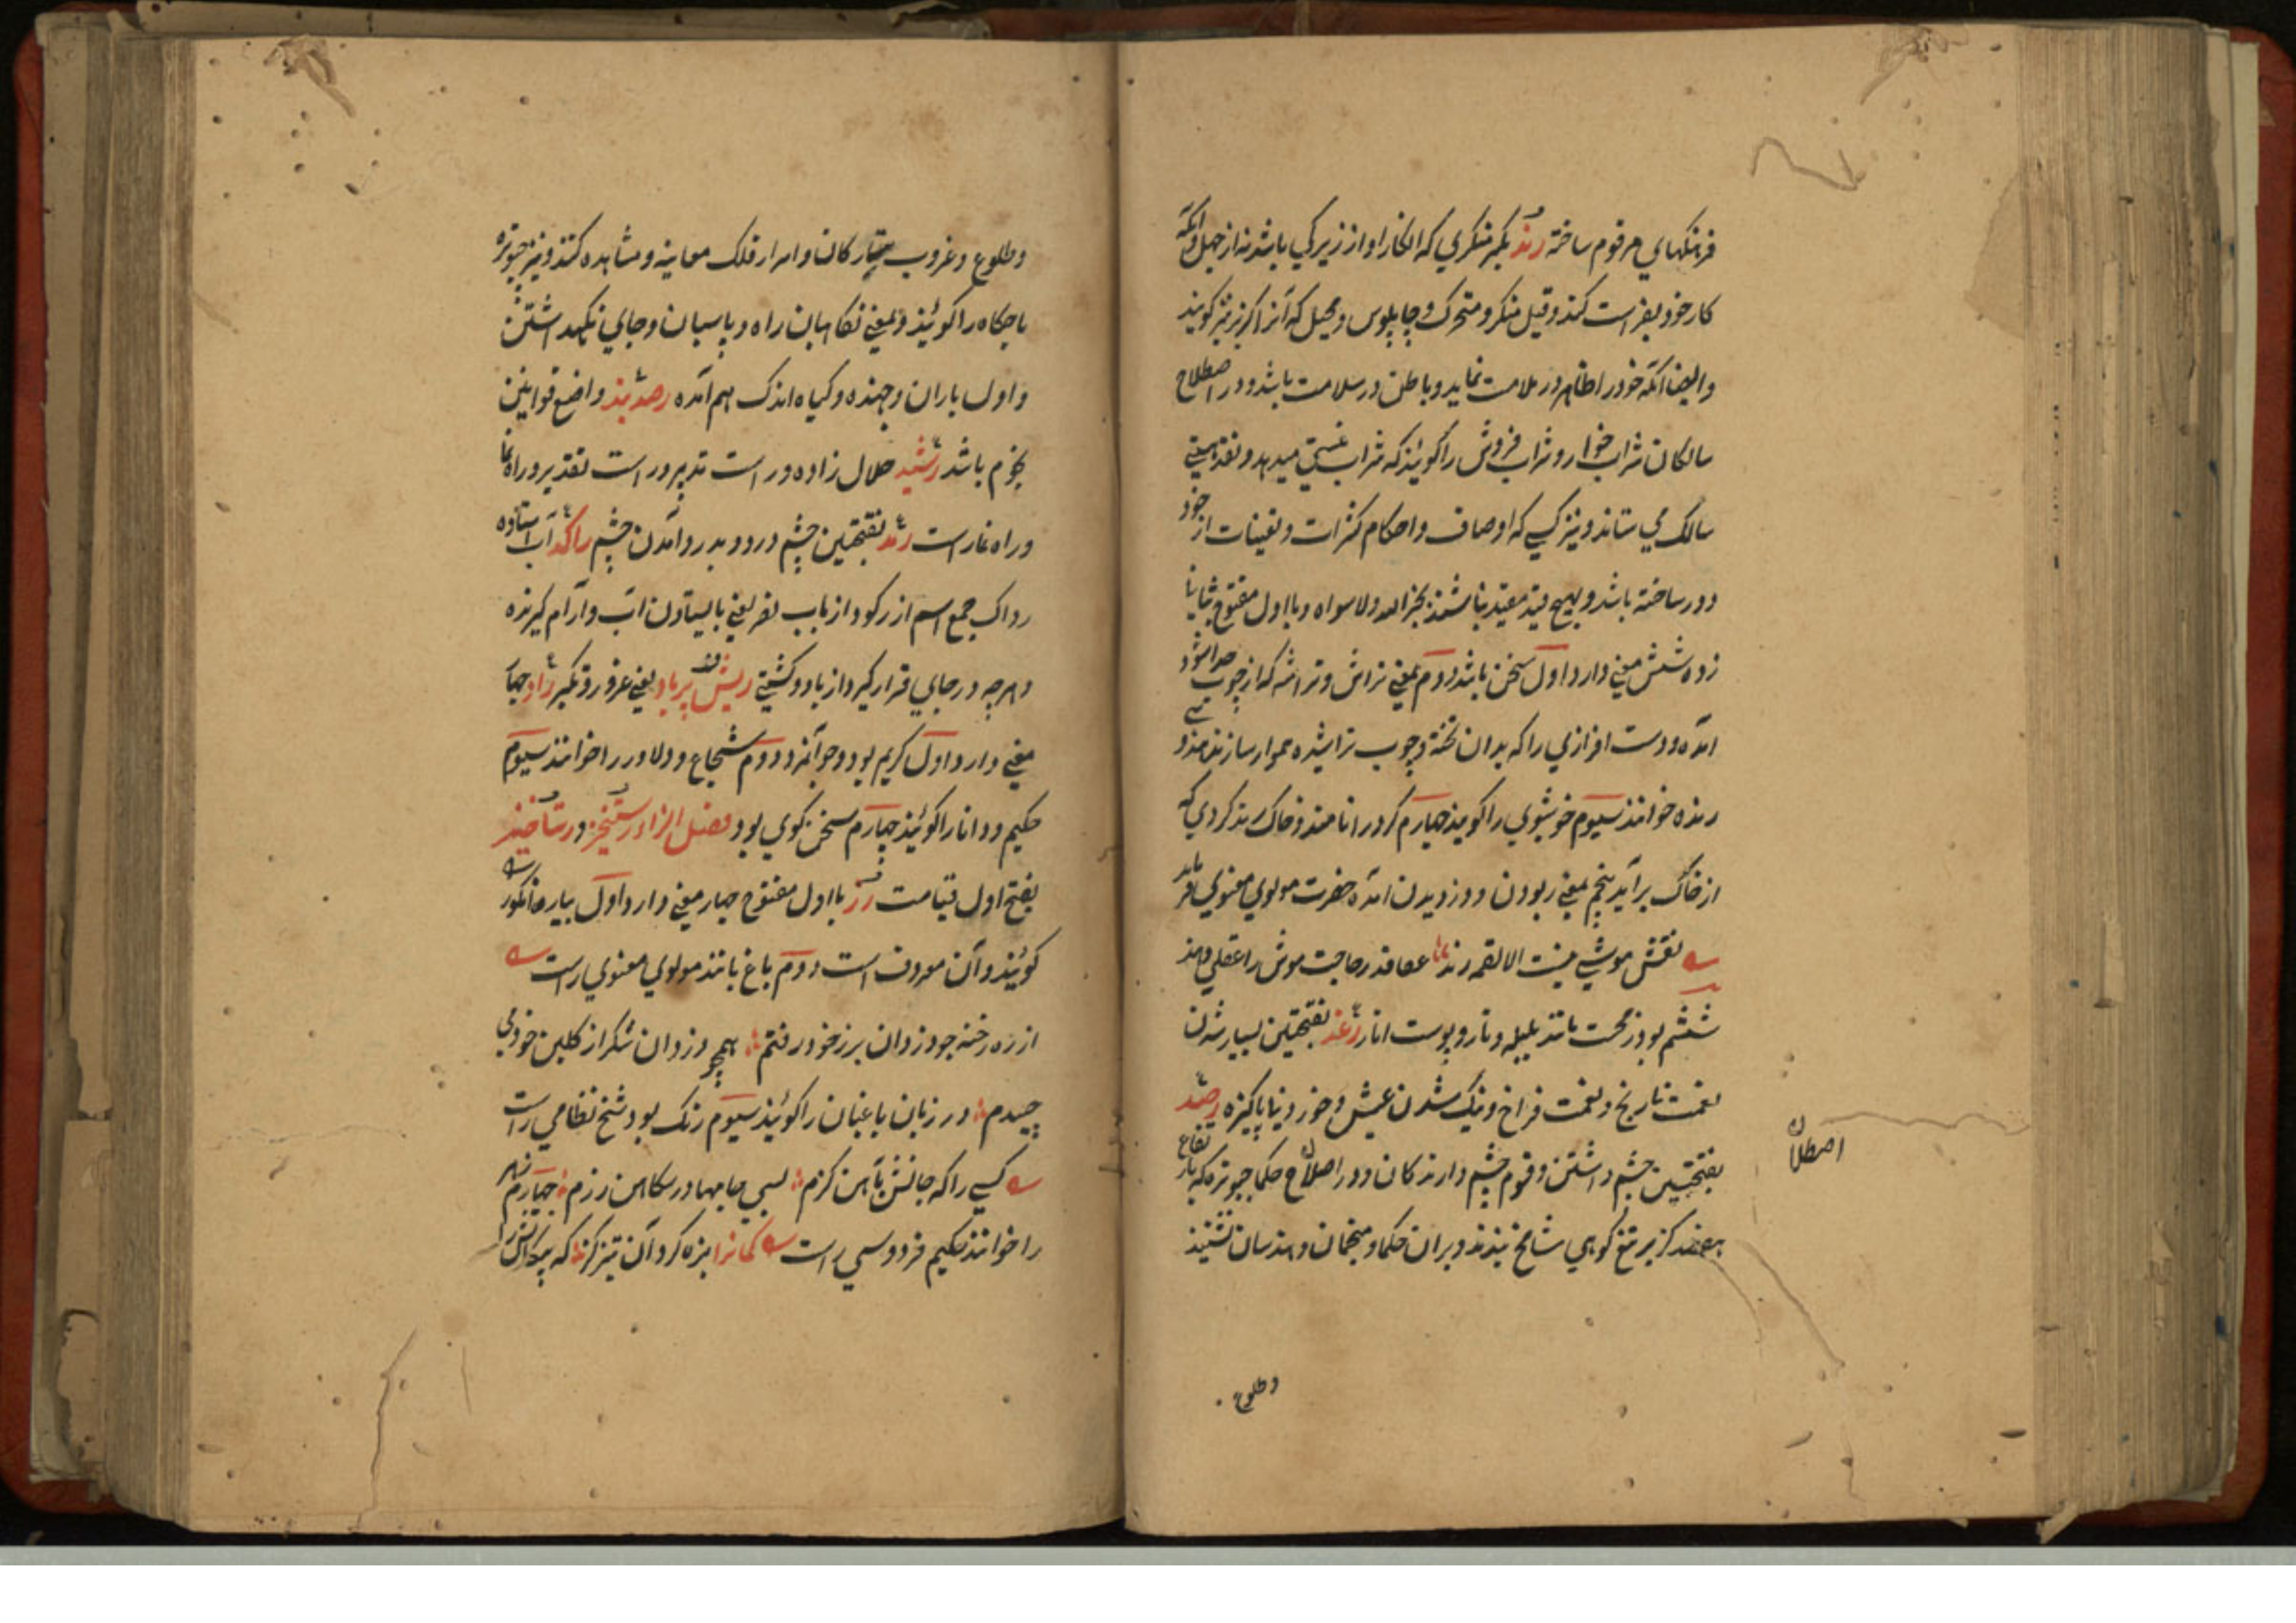 فرهنکهای مرقوم ساخته رند بکسر منکری که انکار او از زیرکی باشد نه از جهل و آنکه
کار خود بفراست کند و قیل منکر و متحرک و چاپلوس و محیل که آنرا کربز نیز کویند
و ایضا آنکه خود را ظاهر در ملامت نماید و باطن در سلامت باشد و در اصطلاح
سالکان شراب خوار و شراب فروش را کوئند که شراب نیستی میدهد و نقد هستی
سالک می ستاند و نیز کسی که اوصاف و احکام کثرات و تعینات از خود
دور ساخته باشد و بهیچ قید مقید نباشد بجز الله ولا سواه و با اول مفتوح بثانی
زده شش معنی دارد اول سخن باشد دوم بمعنی تراش و تراشه که از چوب جدا شود
آمده و دست افزاری را که بدان تخته و چوب تراشیده هموار سازند
رنده خوانند سیوم خوشبوی را کویند چهارم کرد را نامند و خاک رند کردی که
از خاک برآید پنجم بمعنی ربودن و دزدیدن آمده حضرت مولوی معنوی فرماید
نقش موشی نیست الا لقمه رند عقل قدر حاجت موش را عقلی دهند
ششم بود زمخت مانند بلیله و مازو و پوست انار رغد بفتحتین بسیار شدن
نعمت نا رنج و نعمت فراخ و نیک شدن عیش و خوردنیها پاکیزه رصد
بفتحتین چشم داشتن و قوم چشم دارندکان و در اصطلاح حکما چبوتره که بارتفاع
هفصد کز بر تیغ کوهی شامخ بندند و بران حکما و منجمان و مهندسان نشینند
اصطلاح
وطلوع
وطلوع و غروب ستارکان و اسرار فلک معاینه و مشاهده کنند و نیز چبوتره
باجکاه را کوئند و بمعنی نکاهبان راه و پاسبان و جای نکهداشتن
و اول باران و جهنده و کیاه اندک هم آمده رصدبند واضع قوانین
نجوم باشد رشید حلال زاده و راست تدبیر و راست تقدیر و راه نما
و راه نمای راست رمد بفتحتین چشم درد و بدرد آمدن چشم راکد آب استاده
رواکد جمع اسم از رکود از باب نصر یعنی بایستادن آب و آرام کیرنده
و هرچه در جای قرار کیرد از باد و کشتی ریش پرباد یعنی غرور و تکبر راد چهار
معنی دارد اول کریم بود و جوانمرد دوم شجاع و دلاور را خوانند سیوم
حکیم و دانا را کوئند چهارم سخن کوی بود فصل الزا رستخیز و رستاخیز
بفتح اول قیامت رز با اول مفتوح چهار معنی دارد اول بیاره انکور را
کوئند و آن معروف است دوم باغ باشد مولوی معنوی راست
از ره رخنه چو دزدان برز خود رفتم همچو دزدان شکر از کلبن خود می
چیدم و رزبان باغبان را کوئند سیوم رنک بود شیخ نظامی راست
کسی را که جانش بآهن کزم بسی جامها در سکاهن رزم چهارم زهر
را خوانند حکیم فردوسی راست کمانرا بزه کرد و آن تیر کز که پیکانش را